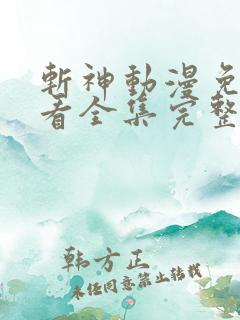 斬神動漫免
看全集完整
韩方正
未经同意禁止转载